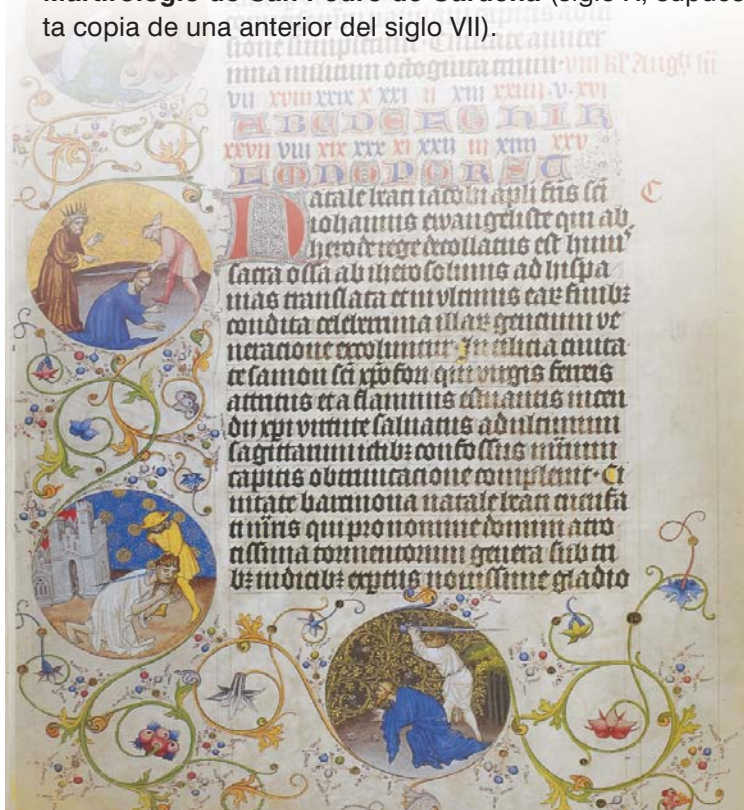 Martirologio de San Pedro de Cardeña (siglo X, supues-
ta copia de una anterior del siglo VII).
militum octoginta trium · viii kl' Aug
vii xviii xxix x xxi ii xiii xxiiii · v · xvi
A B C D E H I K
xxvii viii xix xxx xi xxii iii xiiii xxv
L M N O P R S
Natale beati iacobi apli fris sci C
iohannis ewangeliste qui ab
herode rege decollatus est huius
sacra ossa ab iherosolimis ad hispa
nias translata et in vltimis eaꝝ finibꝫ
condita celeberrima illaꝝ gentium ve
neracione excoluntur In licia ciuita
te samon sci xpofori qui virgis ferreis
attritus et a flammis estuantis incen
dii xpi virtute saluatus ad ultimum
sagittarum ictibꝫ confossus
capitis obtruncacione compleuit · Ci
uitate barcinona natale beati cucufa
ti qui pro nomine domini atro
cissima tormentorum genera sub tri
bꝫ iudicibꝫ expertus nouissime gladio